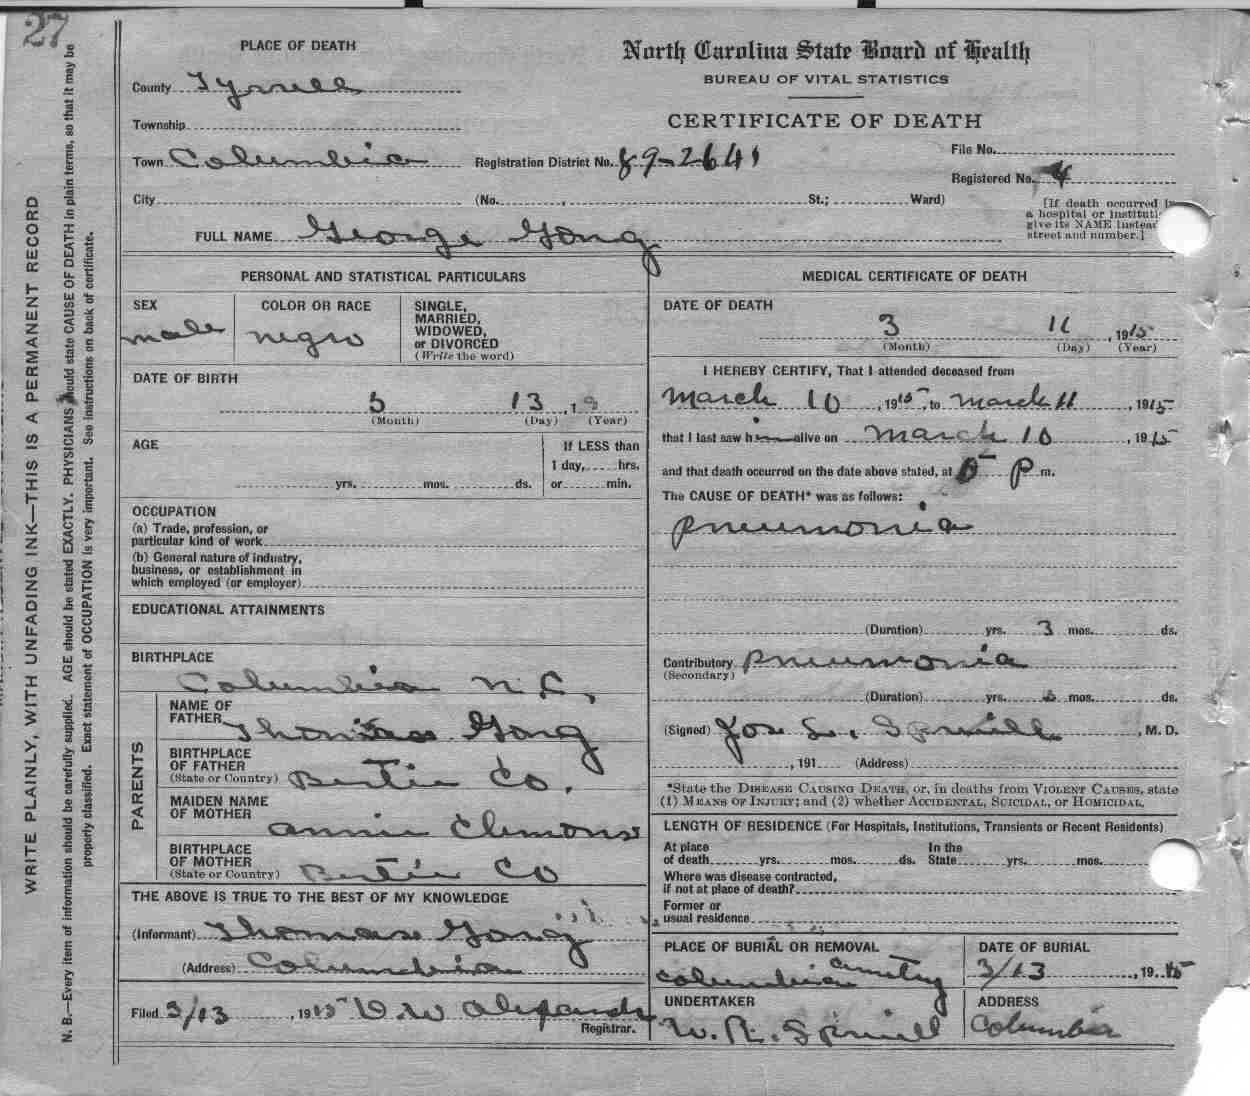 27
PLACE OF DEATH
County Tyrrell
Township
Town Columbia
City
North Carolina State Board of Health
BUREAU OF VITAL STATISTICS
CERTIFICATE OF DEATH
Registration District No. 89-2641
File No.
Registered No. 4
(No. , St.; Ward)
[If death occurred in
a hospital or instituti
give its NAME instead
street and number.]
FULL NAME George Gong
PERSONAL AND STATISTICAL PARTICULARS
SEX
male
COLOR OR RACE
negro
SINGLE,
MARRIED,
WIDOWED,
or DIVORCED
(Write the word)
DATE OF BIRTH
5 13, 1
(Month) (Day) (Year)
AGE
yrs. mos. ds.
If LESS than
1 day, hrs.
or min.
OCCUPATION
(a) Trade, profession, or
particular kind of work
(b) General nature of industry,
business, or establishment in
which employed (or employer)
EDUCATIONAL ATTAINMENTS
BIRTHPLACE
Columbia N.C.
PARENTS
NAME OF
FATHER Thomas Gong
BIRTHPLACE
OF FATHER
(State or Country) Bertie Co.
MAIDEN NAME
OF MOTHER Annie Clemons
BIRTHPLACE
OF MOTHER
(State or Country) Bertie Co
THE ABOVE IS TRUE TO THE BEST OF MY KNOWLEDGE
(Informant) Thomas Gong
(Address) Columbia
Filed 3/13, 1915 W Alexander
Registrar.
MEDICAL CERTIFICATE OF DEATH
DATE OF DEATH
3 11, 1915
(Month) (Day) (Year)
I HEREBY CERTIFY, That I attended deceased from
March 10, 1915, to March 11, 1915
that I last saw him alive on March 10, 1915
and that death occurred on the date above stated, at P m.
The CAUSE OF DEATH* was as follows:
Pneumonia
(Duration) yrs. 3 mos. ds.
Contributory Pneumonia
(Secondary)
(Duration) yrs. mos. ds.
(Signed) Jos L. Spruill, M. D.
, 191 (Address)
*State the DISEASE CAUSING DEATH, or, in deaths from VIOLENT CAUSES, state
(1) MEANS OF INJURY; and (2) whether ACCIDENTAL, SUICIDAL, or HOMICIDAL.
LENGTH OF RESIDENCE (For Hospitals, Institutions, Transients or Recent Residents)
At place In the
of death yrs. mos. ds. State yrs. mos.
Where was disease contracted,
if not at place of death?
Former or
usual residence
PLACE OF BURIAL OR REMOVAL
Columbia Cemetry
DATE OF BURIAL
3/13, 1915
UNDERTAKER
W. R. Spruill
ADDRESS
Columbia
WRITE PLAINLY, WITH UNFADING INK—THIS IS A PERMANENT RECORD
N. B.—Every item of information should be carefully supplied. AGE should be stated EXACTLY. PHYSICIANS should state CAUSE OF DEATH in plain terms, so that it may be
properly classified. Exact statement of OCCUPATION is very important. See instructions on back of certificate.